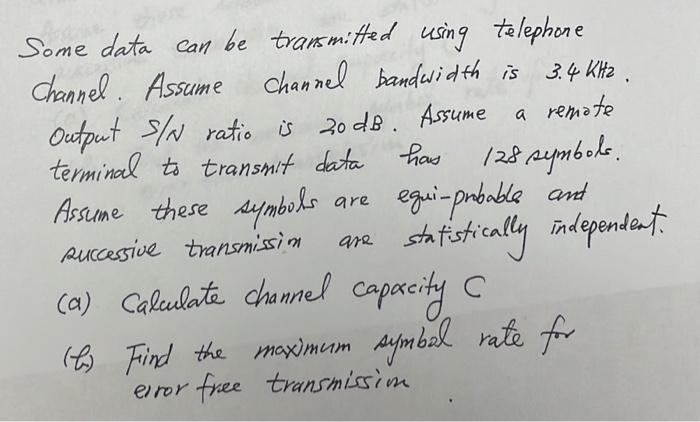 Some data can be transmitted using telephone
channel. Assume channel bandwidth is 3.4 KHz.
Output S/N ratio is 20 dB. Assume a remote
terminal to transmit data has 128 symbols.
Assume these symbols are equi-probable and
successive transmissim are statistically independent.
(a) Calculate channel capacity C
(b) Find the maximum symbol rate for
error free transmissim.